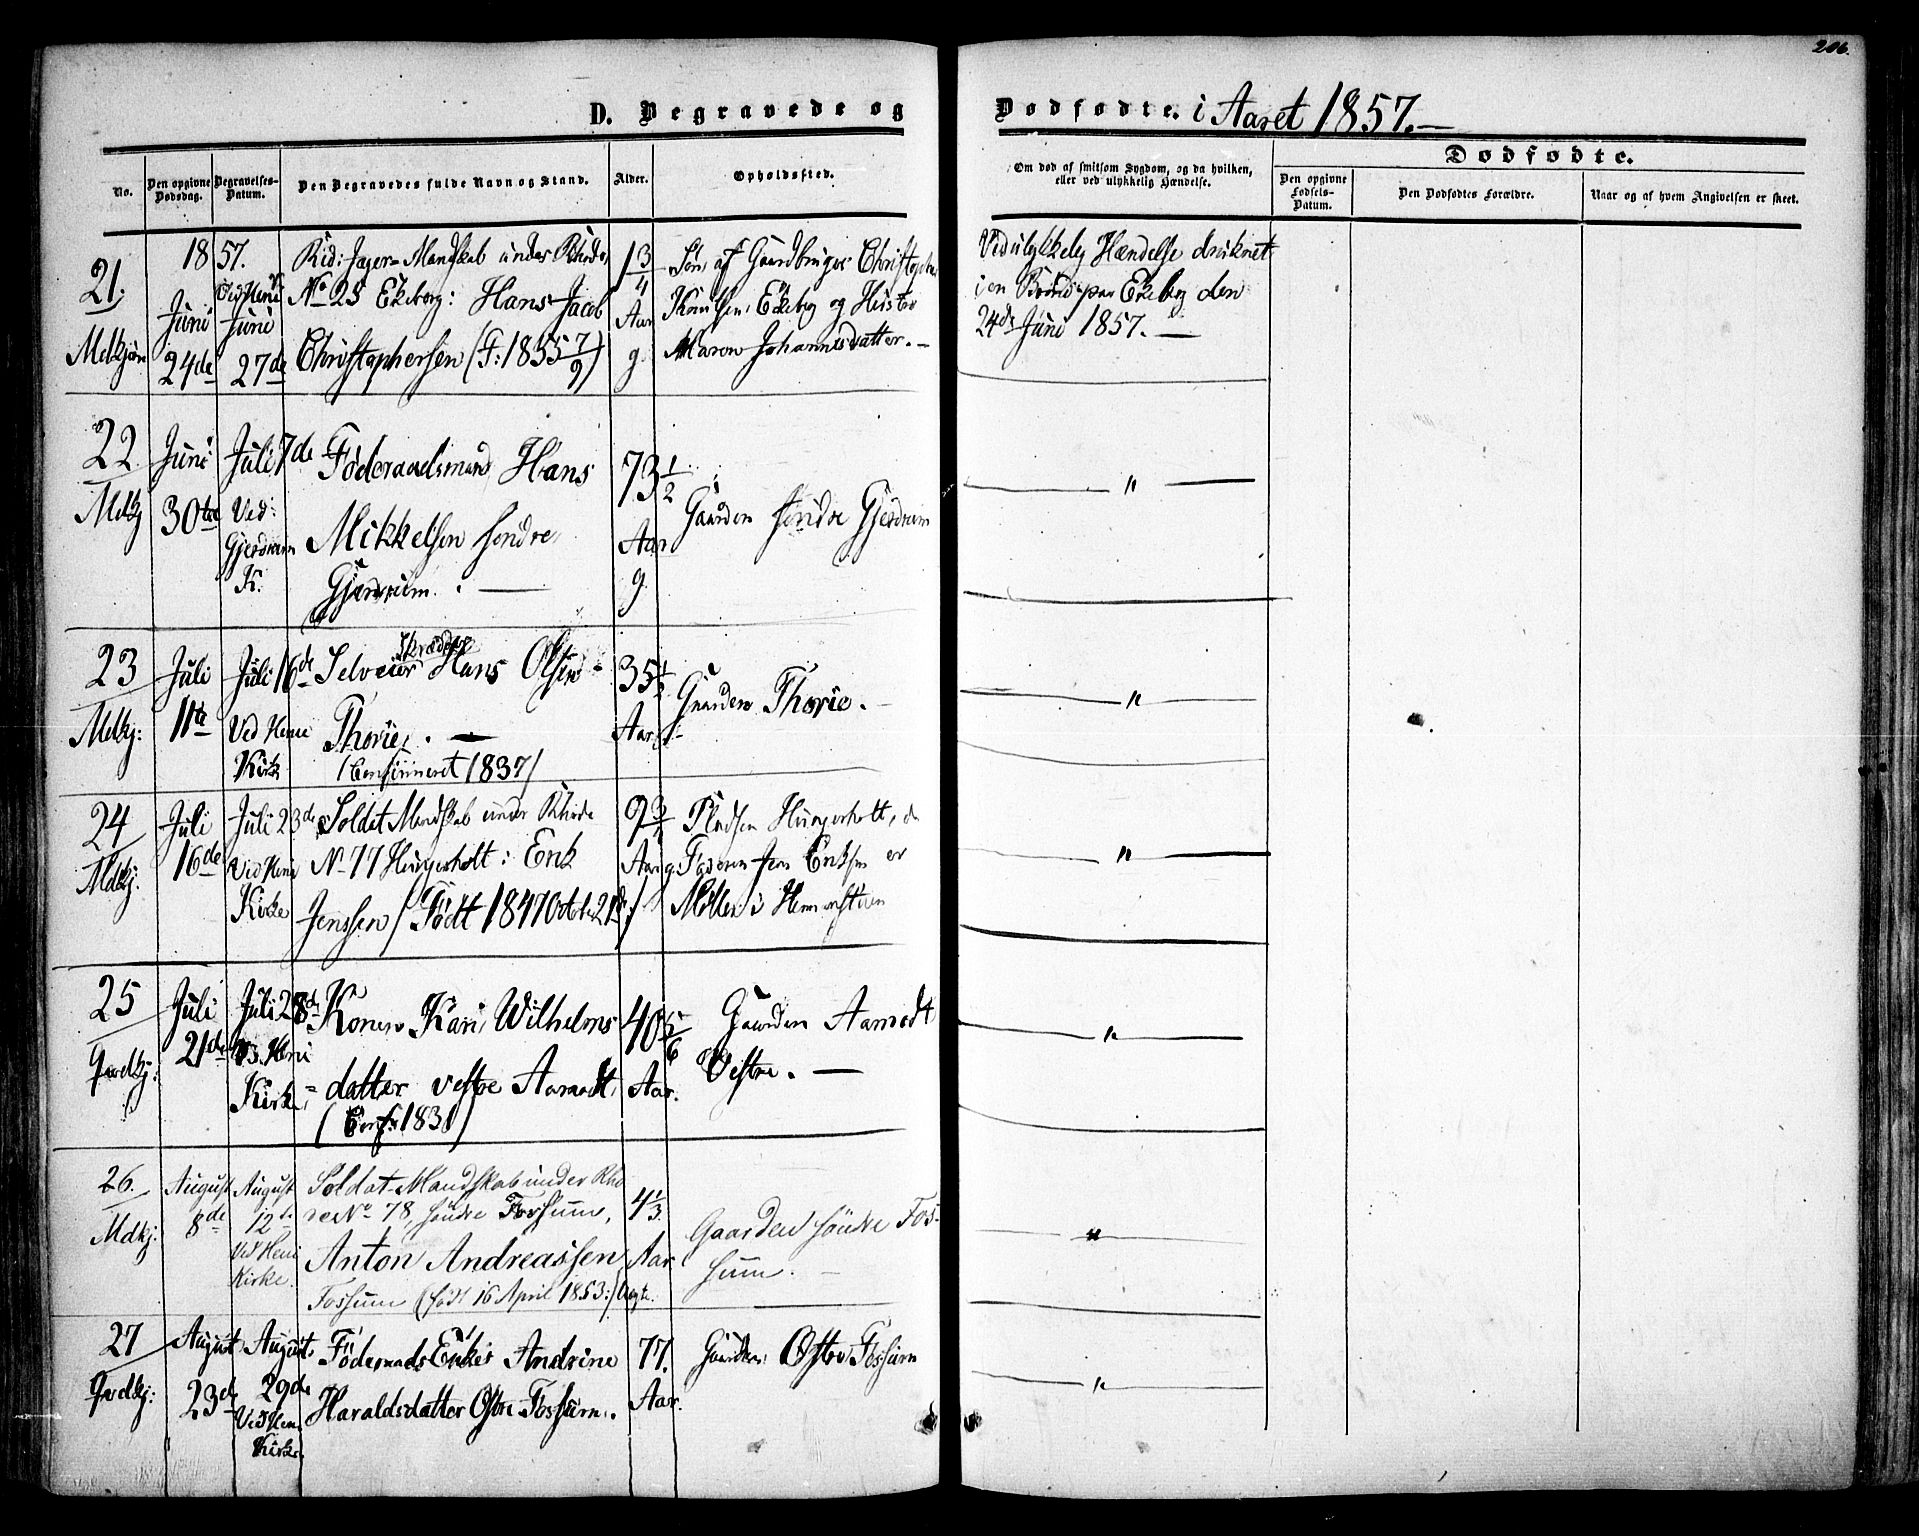 206.
D. Begravede og
Dødfødte. i Aaret 1857.—
No.
Den opgivne Dødsdag.
Begravelses-Datum.
Den Begravedes fulde Navn og Stand.
Alder.
Opholdssted.
Om død af smitsom Sygdom, og da hvilken,
eller ved ulykkelig Hændelse.
Dødfødte.
Den opgivne Fødsels-Datum.
Den Dødfødtes Forældre.
Naar og af hvem Angivelsen er skeet.
1857.
21.
Mdkjøn
Juni
24de
Juni
27de
Rid: Jæger-Mandskab under Rhode
No 25 Ekeborg: Hans Jacob
Christophersen (F: 1855 7/9)
1 3/4
Aar
g.
Søn af Gaardbruger
Ekeberg og Hustru
Maren Johannisdatter.—
Ved ulykkelig Hændelse druknet
i en Brønd paa Ekeberg den
24de Juni 1857.—
22
Mdkj
Juni
30te
Juli 7de
Ved:
Gjerdrum
K.
Føderaadsmand Hans
Mikkelsen søndre
Gjerdrum. —
73 1/2
Aar
g.
Gaarden søndre Gjerdrum
"
23
Mdkj:
Juli
11te
Juli 16de
Ved Heni
Kirk
Skræder
Selveier Hans Olsen
Thorie. —
(Confirmeret 1837)
35 1/2
Aar
Gaarden Thorie. —
"
24
Mdkj.
Juli
16de
Juli 23de
Ved Heni
Kirke
Soldat Mandskab under Rhode
No 77 Hungerholt: Erik
Jenssen (Født 1847 October 21de)
9 3/4
Aar g.
Pladsen Hungerholt,
Faderen Jens Eriksen er
Møller i
"
25
Qvdkj:
Juli
21de
Juli 28de
V. Heni
Kirke
Konen Kari Wilhelms-
datter vestre Aamodt,
(Conf: 1831)
40 5/6
Aar.
Gaarden Aamodt
Vestre. —
"
26.
Mdkj:
August
8de
August
12te
Ved Heni
Kirke.
Soldat-Mandskab under Rho
de No 78, søndre Fossum,
Anton Andreassen
Fossum (født 16 April 1853:)
4 1/3
Aar
Gaarden søndre Fos-
sum. —
"
27
Qvdkj:
August
23de
August
29de
Ved Heni
Kirke.
Føderaads Enke Andrine
Haraldsdatter Østre Fossum.
77.
Aar.
Gaarden Østre Fossum
"